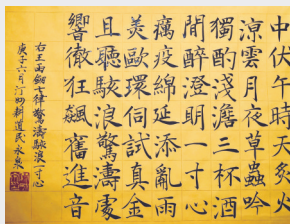 中伏午時天炙火
涼雲月夜草蟲吟
獨酌淺澹三杯酒
間醉澄明一寸心
癘疫綿延添亂雨
美歐環伺試真金
且聽駭浪驚濤處
響徹狂飆奮進音
右王雨鈿七律驚濤駭浪一寸心
庚子六月汀州耕道民永惠